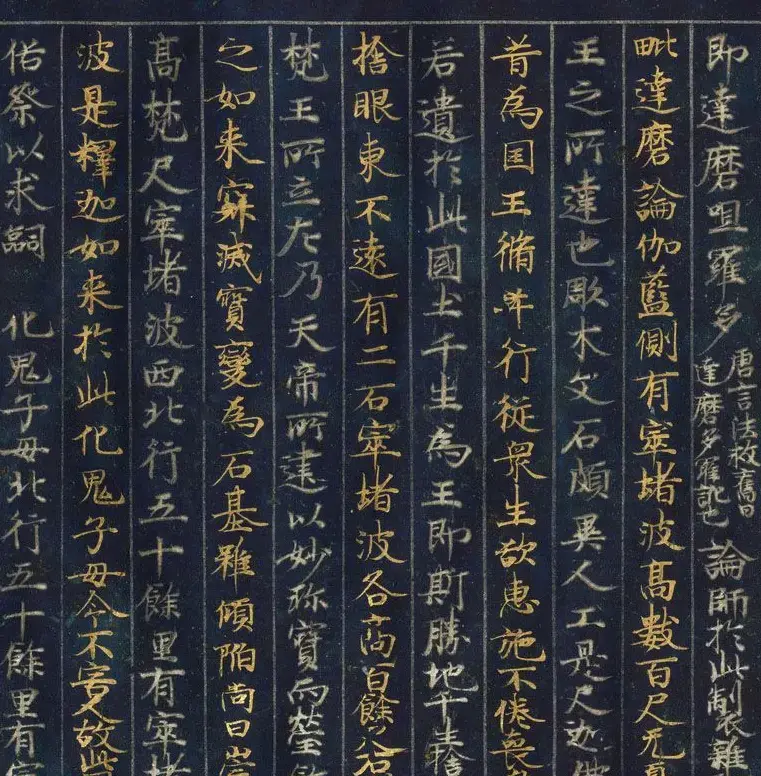 即達磨呾羅多唐言法救舊曰達磨多羅訛也論師於此製雜
毗達磨論伽藍側有窣堵波髙數百尺无
王之所達也彫木文石頗異人工是尺迦
昔為国王脩𦬇行従衆生欲惠施不倦喪
若遺於此國土千生為王即斯勝地千生捨
捨眼東不遠有二石窣堵波各髙百餘尺右
梵王所立左乃天帝所建以妙珎寶而瑩
之如来寂滅寶變為石基雖傾陷尚曰崇
髙梵尺窣堵波西北行五十餘里有窣堵
波是釋迦如来於此化鬼子母令不害人故此
俗祭以求嗣 化鬼子母北行五十餘里有窣